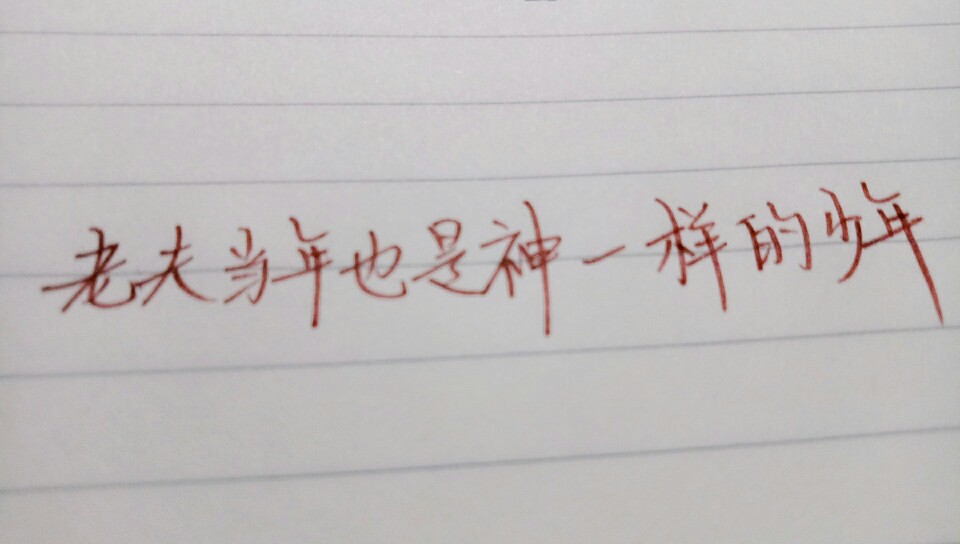 老夫当年也是神一样的少年